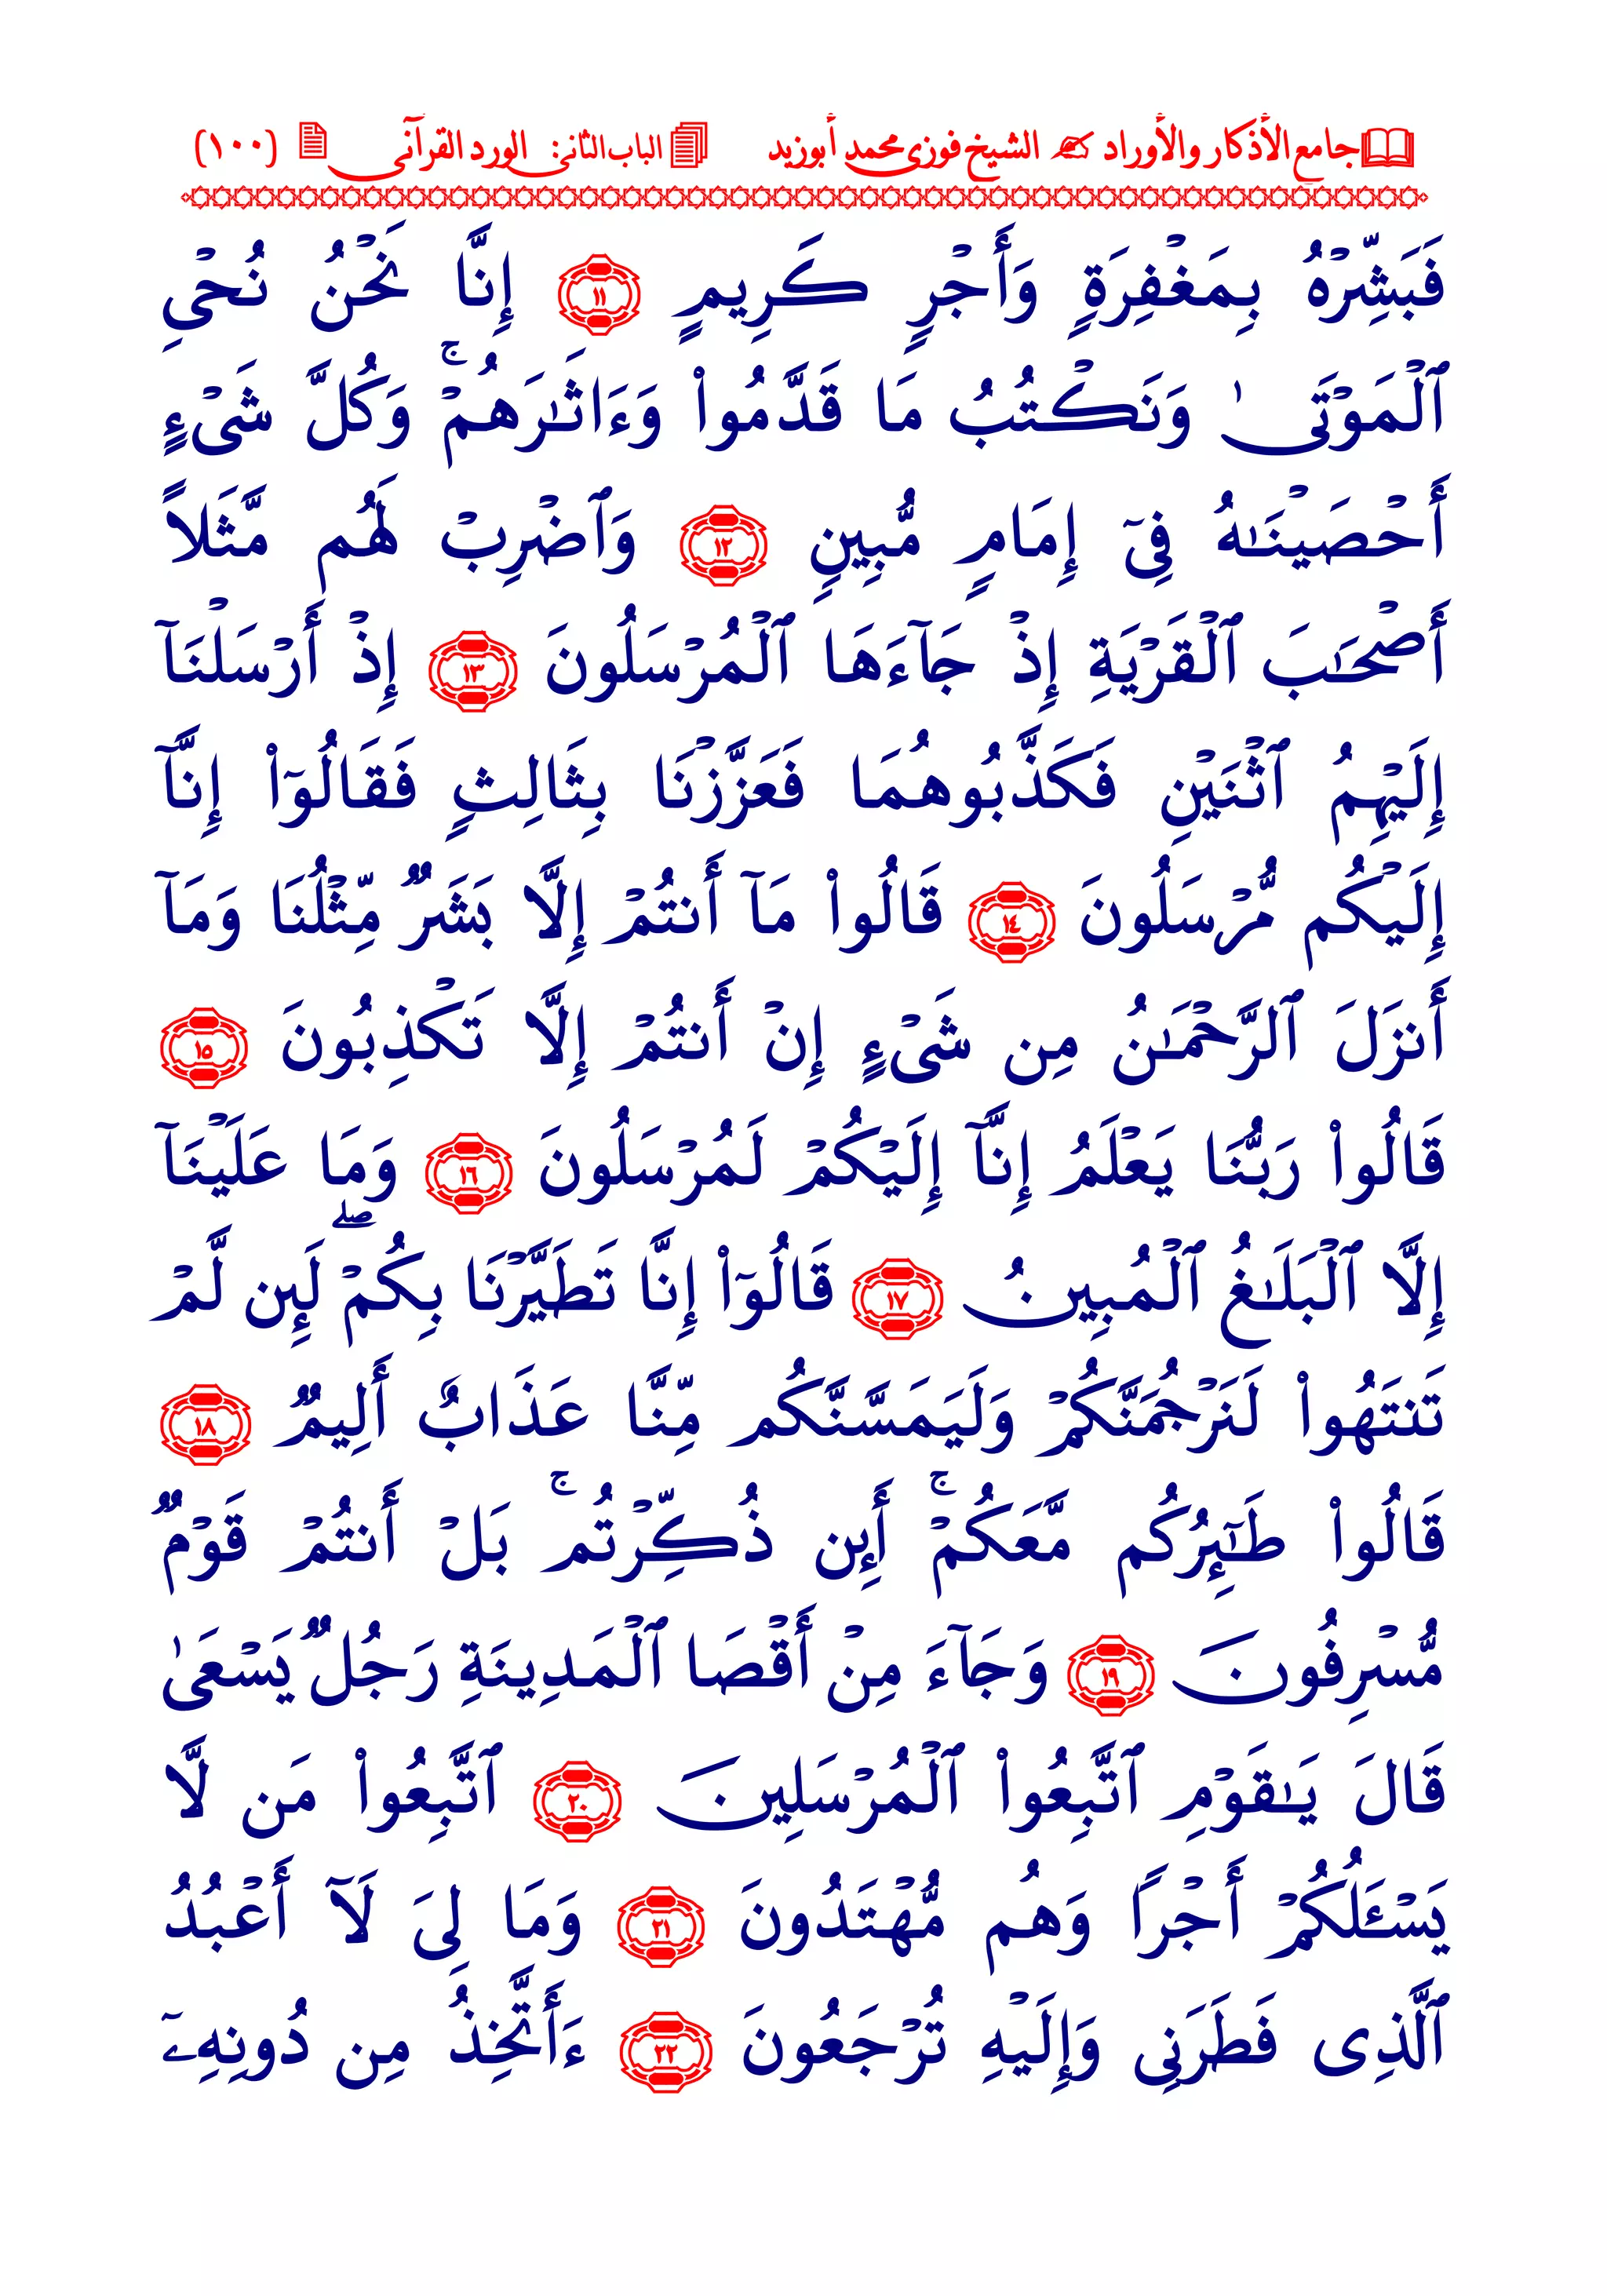 جامع الأذكار والأوراد الشيخ فوزى محمد أبوزيد الباب الثانى: الورد القرآنى (١٠٠)
فَبَشِّرْهُ بِمَغْفِرَةٍ وَأَجْرٍ كَرِيمٍ ١١ إِنَّا نَحْنُ نُحْىِ
ٱلْمَوْتَىٰ وَنَكْتُبُ مَا قَدَّمُوا۟ وَءَاثَـٰرَهُمْ ۚ وَكُلَّ شَىْءٍ
أَحْصَيْنَـٰهُ فِىٓ إِمَامٍ مُّبِينٍ ١٢ وَٱضْرِبْ لَهُم مَّثَلًا
أَصْحَـٰبَ ٱلْقَرْيَةِ إِذْ جَآءَهَا ٱلْمُرْسَلُونَ ١٣ إِذْ أَرْسَلْنَآ
إِلَيْهِمُ ٱثْنَيْنِ فَكَذَّبُوهُمَا فَعَزَّزْنَا بِثَالِثٍ فَقَالُوٓا۟ إِنَّآ
إِلَيْكُم مُّرْسَلُونَ ١٤ قَالُوا۟ مَآ أَنتُمْ إِلَّا بَشَرٌ مِّثْلُنَا وَمَآ
أَنزَلَ ٱلرَّحْمَـٰنُ مِن شَىْءٍ إِنْ أَنتُمْ إِلَّا تَكْذِبُونَ ١٥
قَالُوا۟ رَبُّنَا يَعْلَمُ إِنَّآ إِلَيْكُمْ لَمُرْسَلُونَ ١٦ وَمَا عَلَيْنَآ
إِلَّا ٱلْبَلَـٰغُ ٱلْمُبِينُ ١٧ قَالُوٓا۟ إِنَّا تَطَيَّرْنَا بِكُمْ ۖ لَئِن لَّمْ
تَنتَهُوا۟ لَنَرْجُمَنَّكُمْ وَلَيَمَسَّنَّكُم مِّنَّا عَذَابٌ أَلِيمٌ ١٨
قَالُوا۟ طَـٰٓئِرُكُم مَّعَكُمْ ۚ أَئِن ذُكِّرْتُم ۚ بَلْ أَنتُمْ قَوْمٌ
مُّسْرِفُونَ ١٩ وَجَآءَ مِنْ أَقْصَا ٱلْمَدِينَةِ رَجُلٌ يَسْعَىٰ
قَالَ يَـٰقَوْمِ ٱتَّبِعُوا۟ ٱلْمُرْسَلِينَ ٢٠ ٱتَّبِعُوا۟ مَن لَّا
يَسْـَٔلُكُمْ أَجْرًا وَهُم مُّهْتَدُونَ ٢١ وَمَا لِىَ لَآ أَعْبُدُ
ٱلَّذِى فَطَرَنِى وَإِلَيْهِ تُرْجَعُونَ ٢٢ ءَأَتَّخِذُ مِن دُونِهِۦٓ